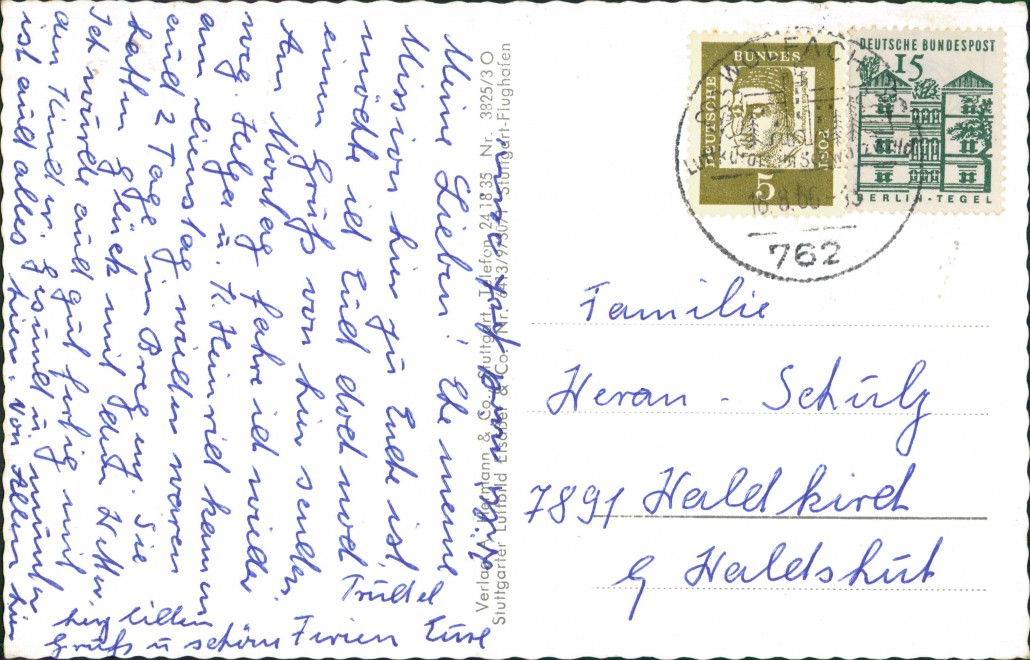 Meine Lieben! Ehe meine
Mission hier zu Ende ist,
möchte ich Euch doch noch
einen Gruß von hier senden.
Am Montag fahre ich wieder
weg. Helga u. K. Heinrich kamen
am Dienstag wieder waren
auch 2 Tage in Bregenz. Sie
hatten Glück mit dem Wetter.
Ich wurde auch gut fertig mit
den Kindern. Gesund u. munter
ist auch alles hier. Von Allen hier
herzlichen
Gruß u schöne Ferien Eure
Trudel
Verlag A. Altermann & Co., Stuttgart, Telefon 241835 Nr. 3825/3 O
Stuttgarter Luftbild Elsäßer & Co. Stuttgart-Flughafen
DEUTSCHE BUNDESPOST
5
DEUTSCHE BUNDESPOST
15
BERLIN-TEGEL
WOLFACH
16.8.66
762
Familie
Heran - Schulz
7891 Waldkirch
b/ Waldshut